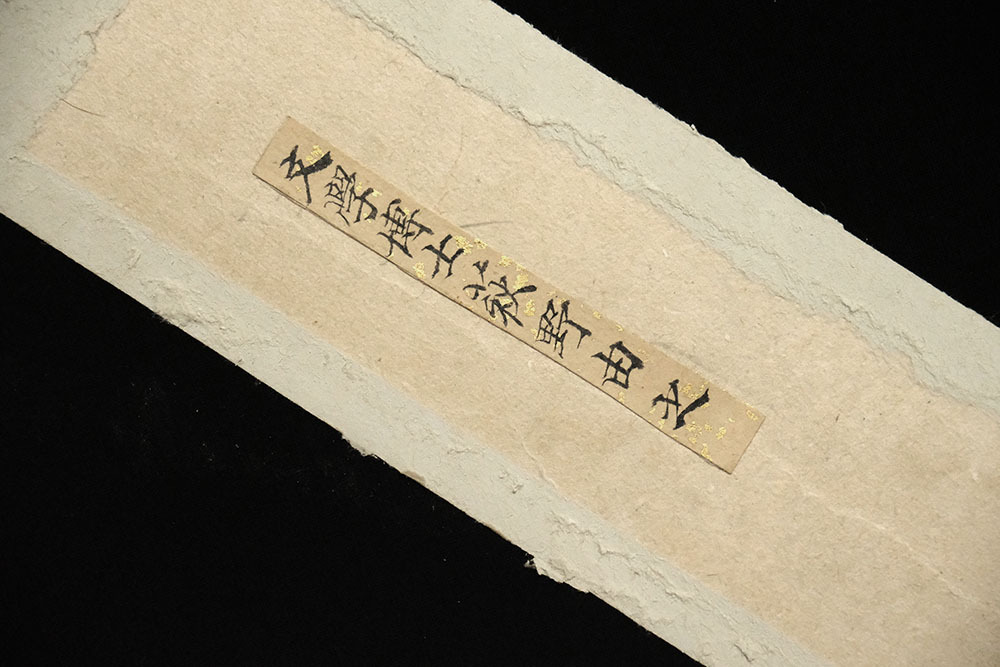 文學博士荻野由之